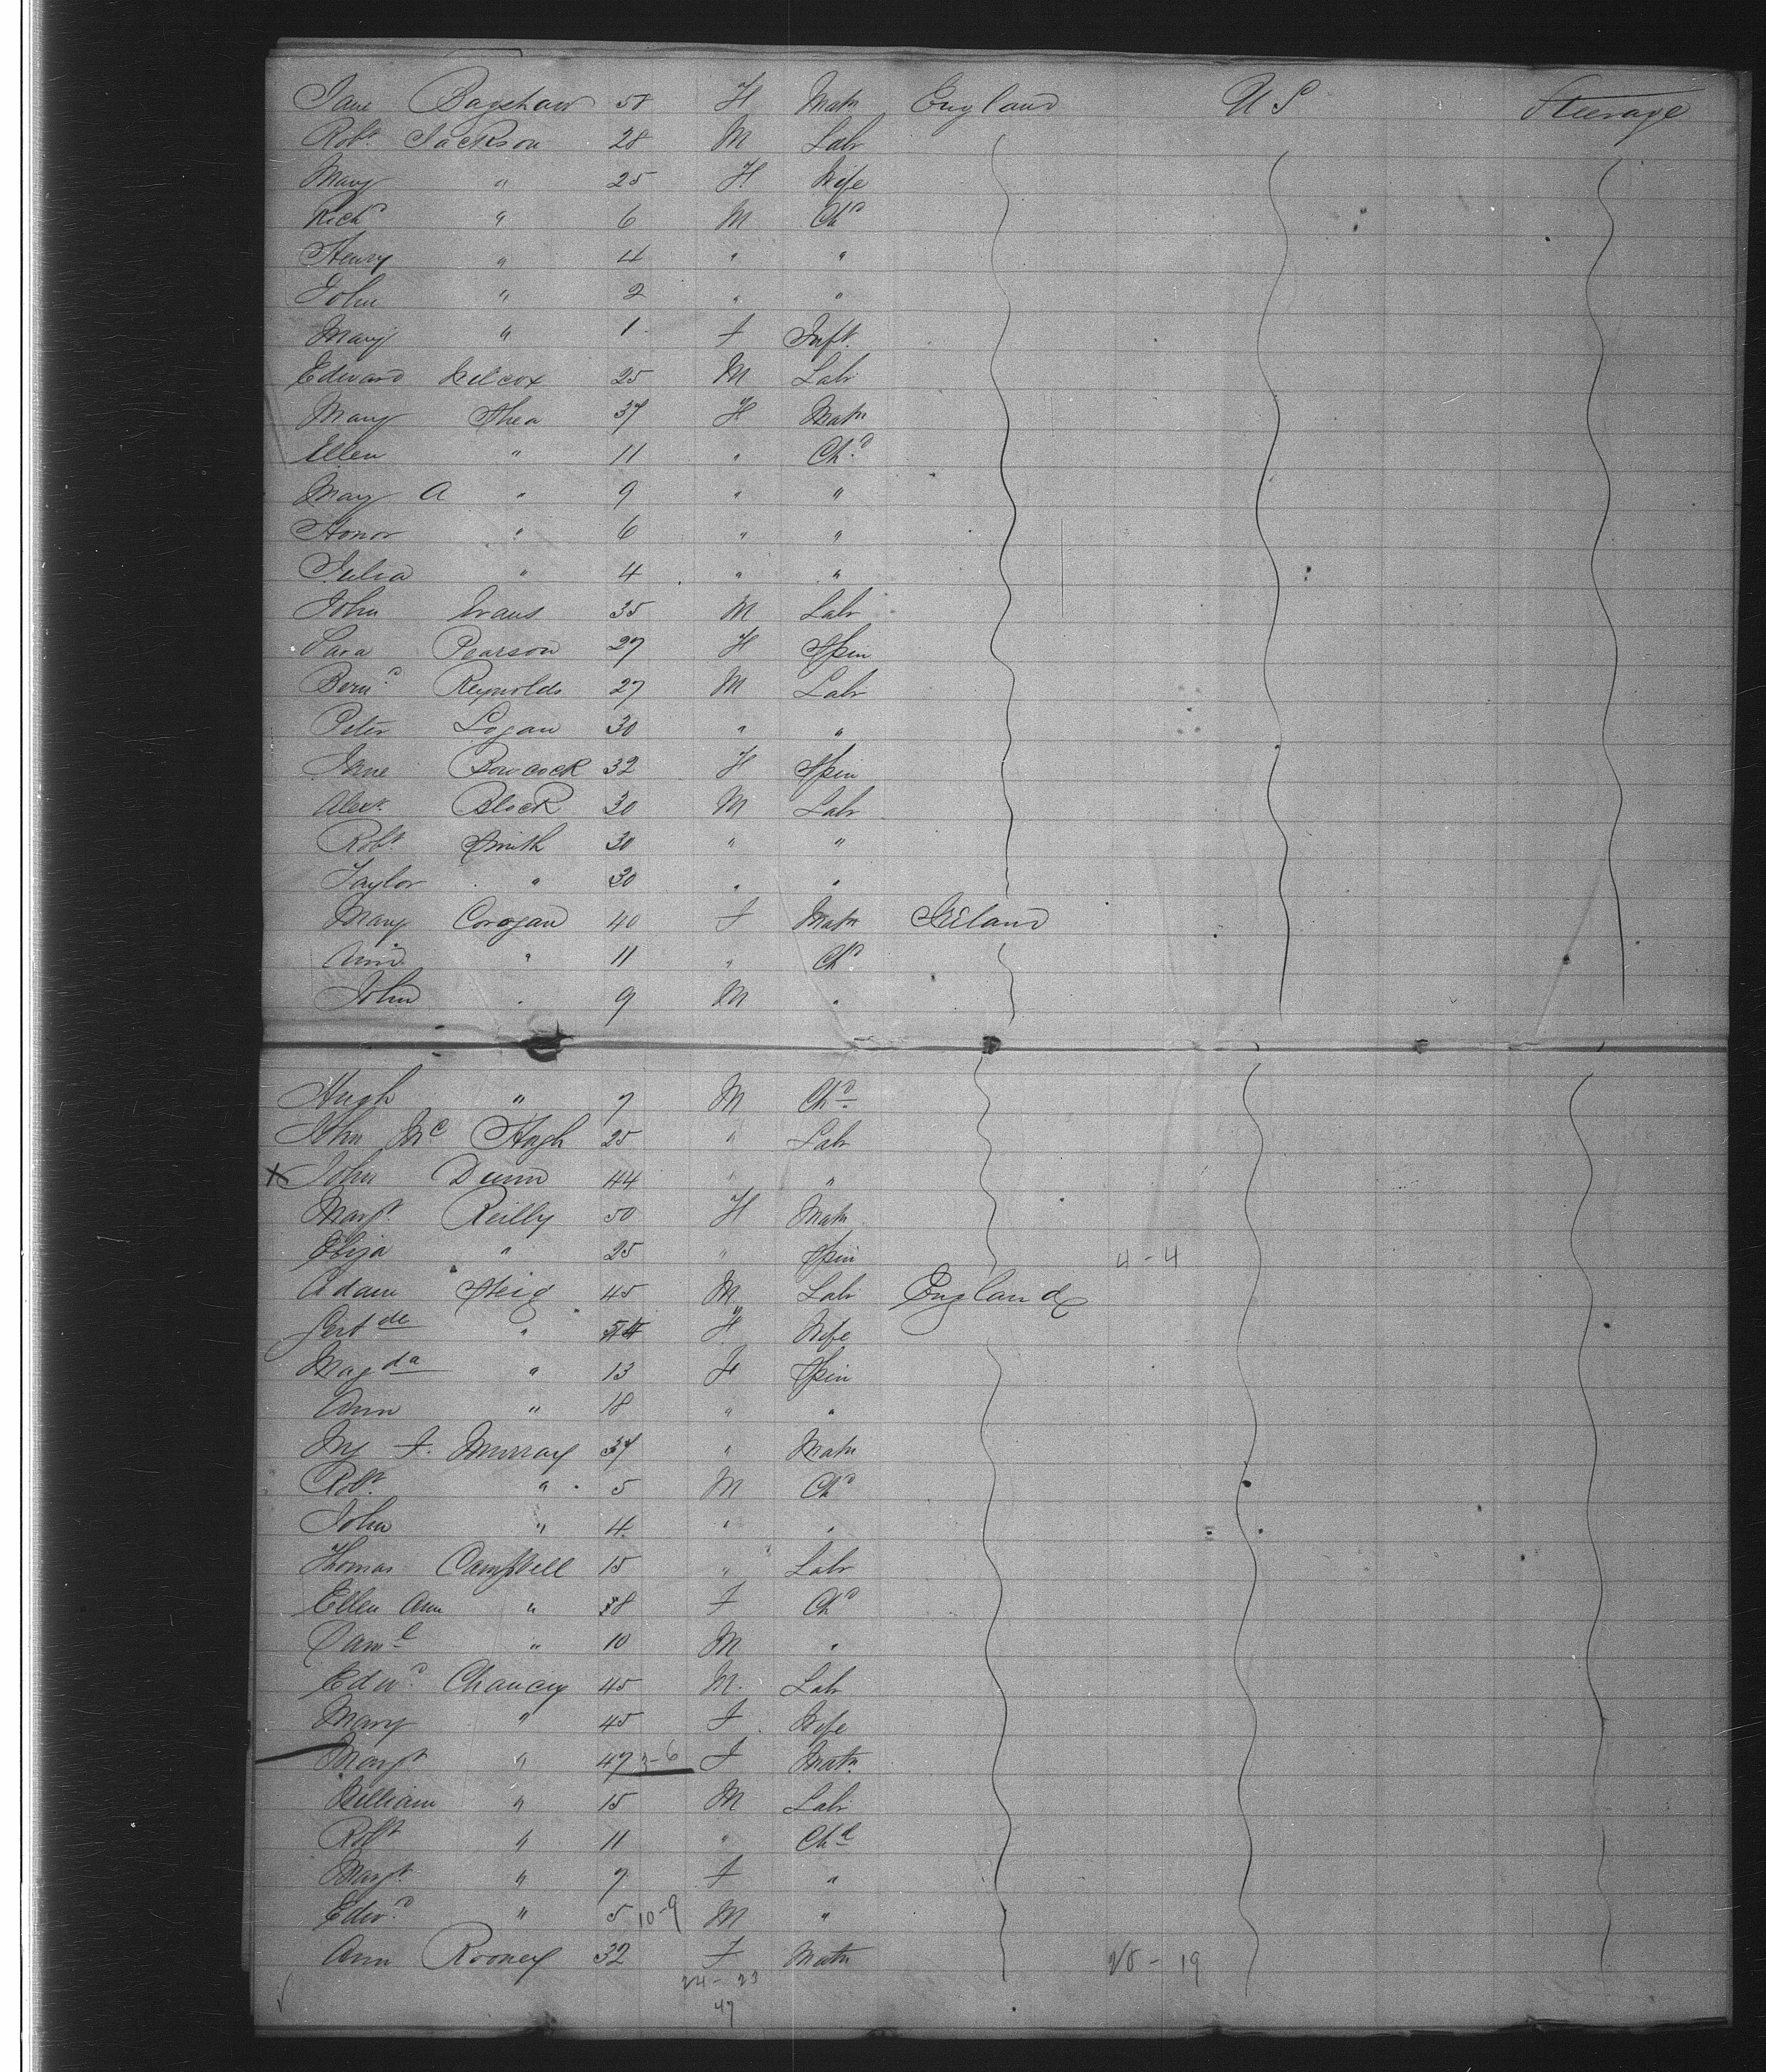 Jane Bagshaw 58 F Matn England U S Steerage
Robt. Jackson 28 M Labr
Mary " 25 F Wife
Richd " 6 M Chd
Henry " 4 " "
John " 2 " "
Mary " 1 F Inft.
Edward Wilcox 25 M Labr
Mary Shea 37 F Matn
Ellen " 11 " Chd
Mary A " 9 " "
Honor " 6 " "
Julia " 4 " "
John Evans 35 M Labr
Sara Pearson 27 F Spin
Bernd Reynolds 27 M Labr
Peter Logan 30 " "
Jane Bowcock 32 F Spin
Alexr. Block 30 M Labr
Robt Smith 30 " "
Taylor " 30 " "
Mary Corogan 40 F Matn Ireland
Ann " 11 " Chd
John " 9 M "
Hugh " 7 M Chd
John Mc Hugh 25 " Labr
X John Dunn 44 " "
Margt. Reilly 50 F Matn
Eliza " 25 " Spin 4-4
Adam 45 M Labr England
Gertde " F Wife
Magda " 13 F Spin
Ann " 18 " "
My F. Murray 37 " Matn
Robt. " 5 M Chd
John " 4 " "
Thomas Campbell 15 " Labr
Ellen Ann " F Chd
Saml " 10 M "
Edwd Chancey 45 M. Labr
Mary " 45 F Wife
Margt " 47 3-6 F Matn
William " 15 M Labr
Robt " 11 " Chd
Margt " 7 F "
Edwd " 5 10-9 M "
Ann Rooney 32 F Matn 20-19
24-23
47